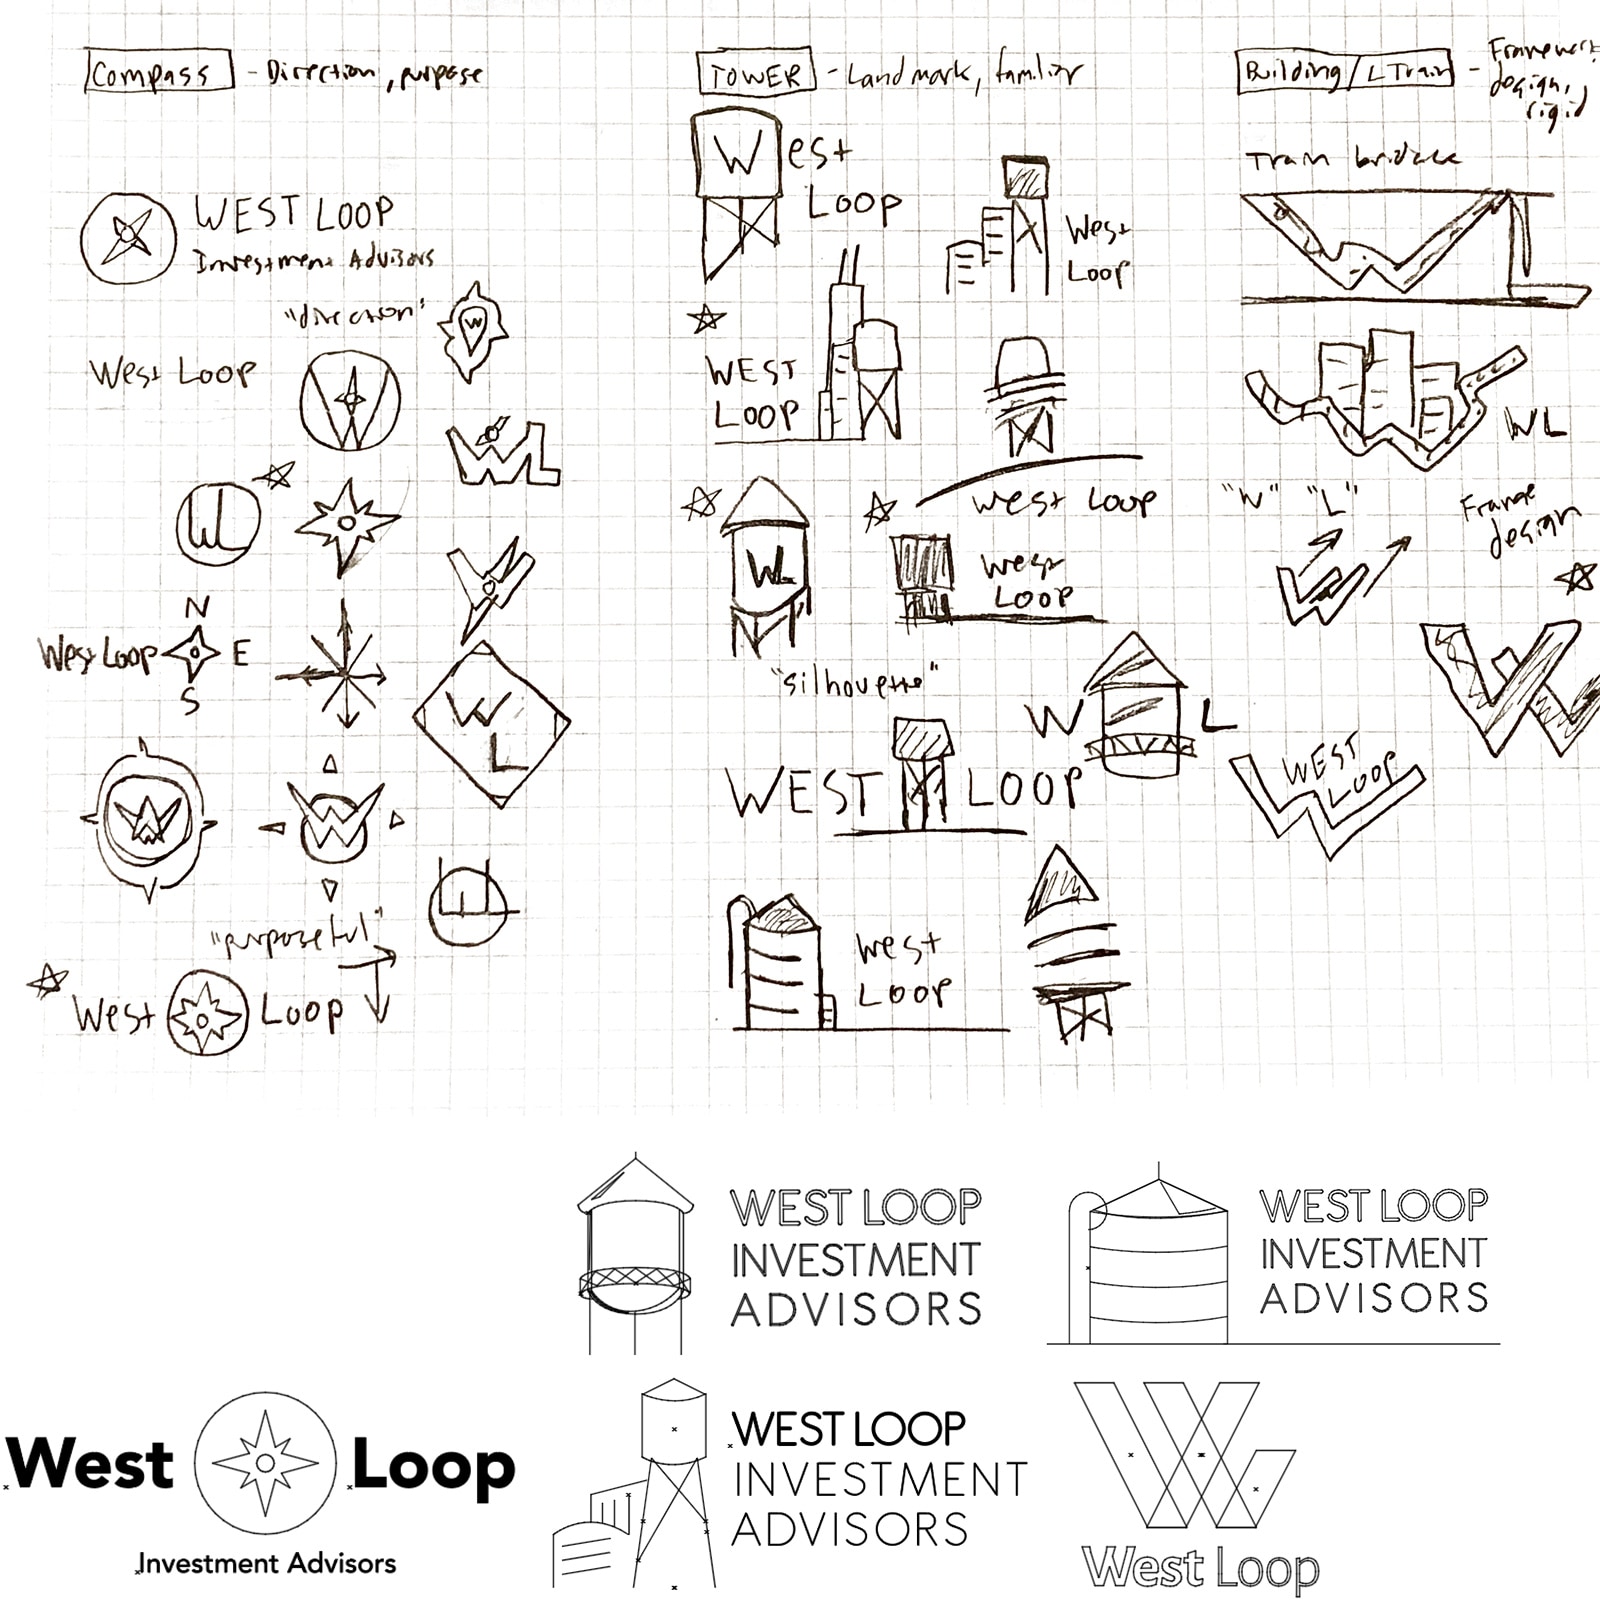 Compass - Direction, purpose
WEST LOOP
Investment Advisors
"direction"
W
West Loop
W
WL
WL
N
West Loop E
S
W
L
W
"purposeful"
West Loop
TOWER - Landmark, familiar
West
LOOP
West
Loop
WEST
LOOP
West Loop
WL
West
LOOP
"silhouette"
W L
WEST LOOP
West
LOOP
Building/LTrain - Framework,
design,
rigid
Train bridge
WL
"W" "L"
Frame
design
W
WEST
LOOP
WEST LOOP
INVESTMENT
ADVISORS
WEST LOOP
INVESTMENT
ADVISORS
West Loop
Investment Advisors
WEST LOOP
INVESTMENT
ADVISORS
West Loop